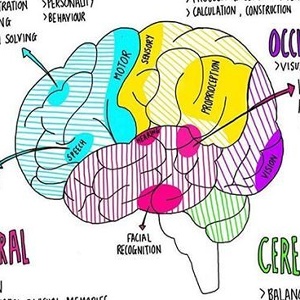 TRATION
NG
SOLVING
>PERSONALITY
>BEHAVIOUR
>CALCULATION, CONSTRUCTION
OCC
>VISU
MOTOR
SENSORY
PROPRIOCEPTION
SPEECH
HEARING
VISION
FACIAL
RECOGNITION
RAL
CERE
>BALANC